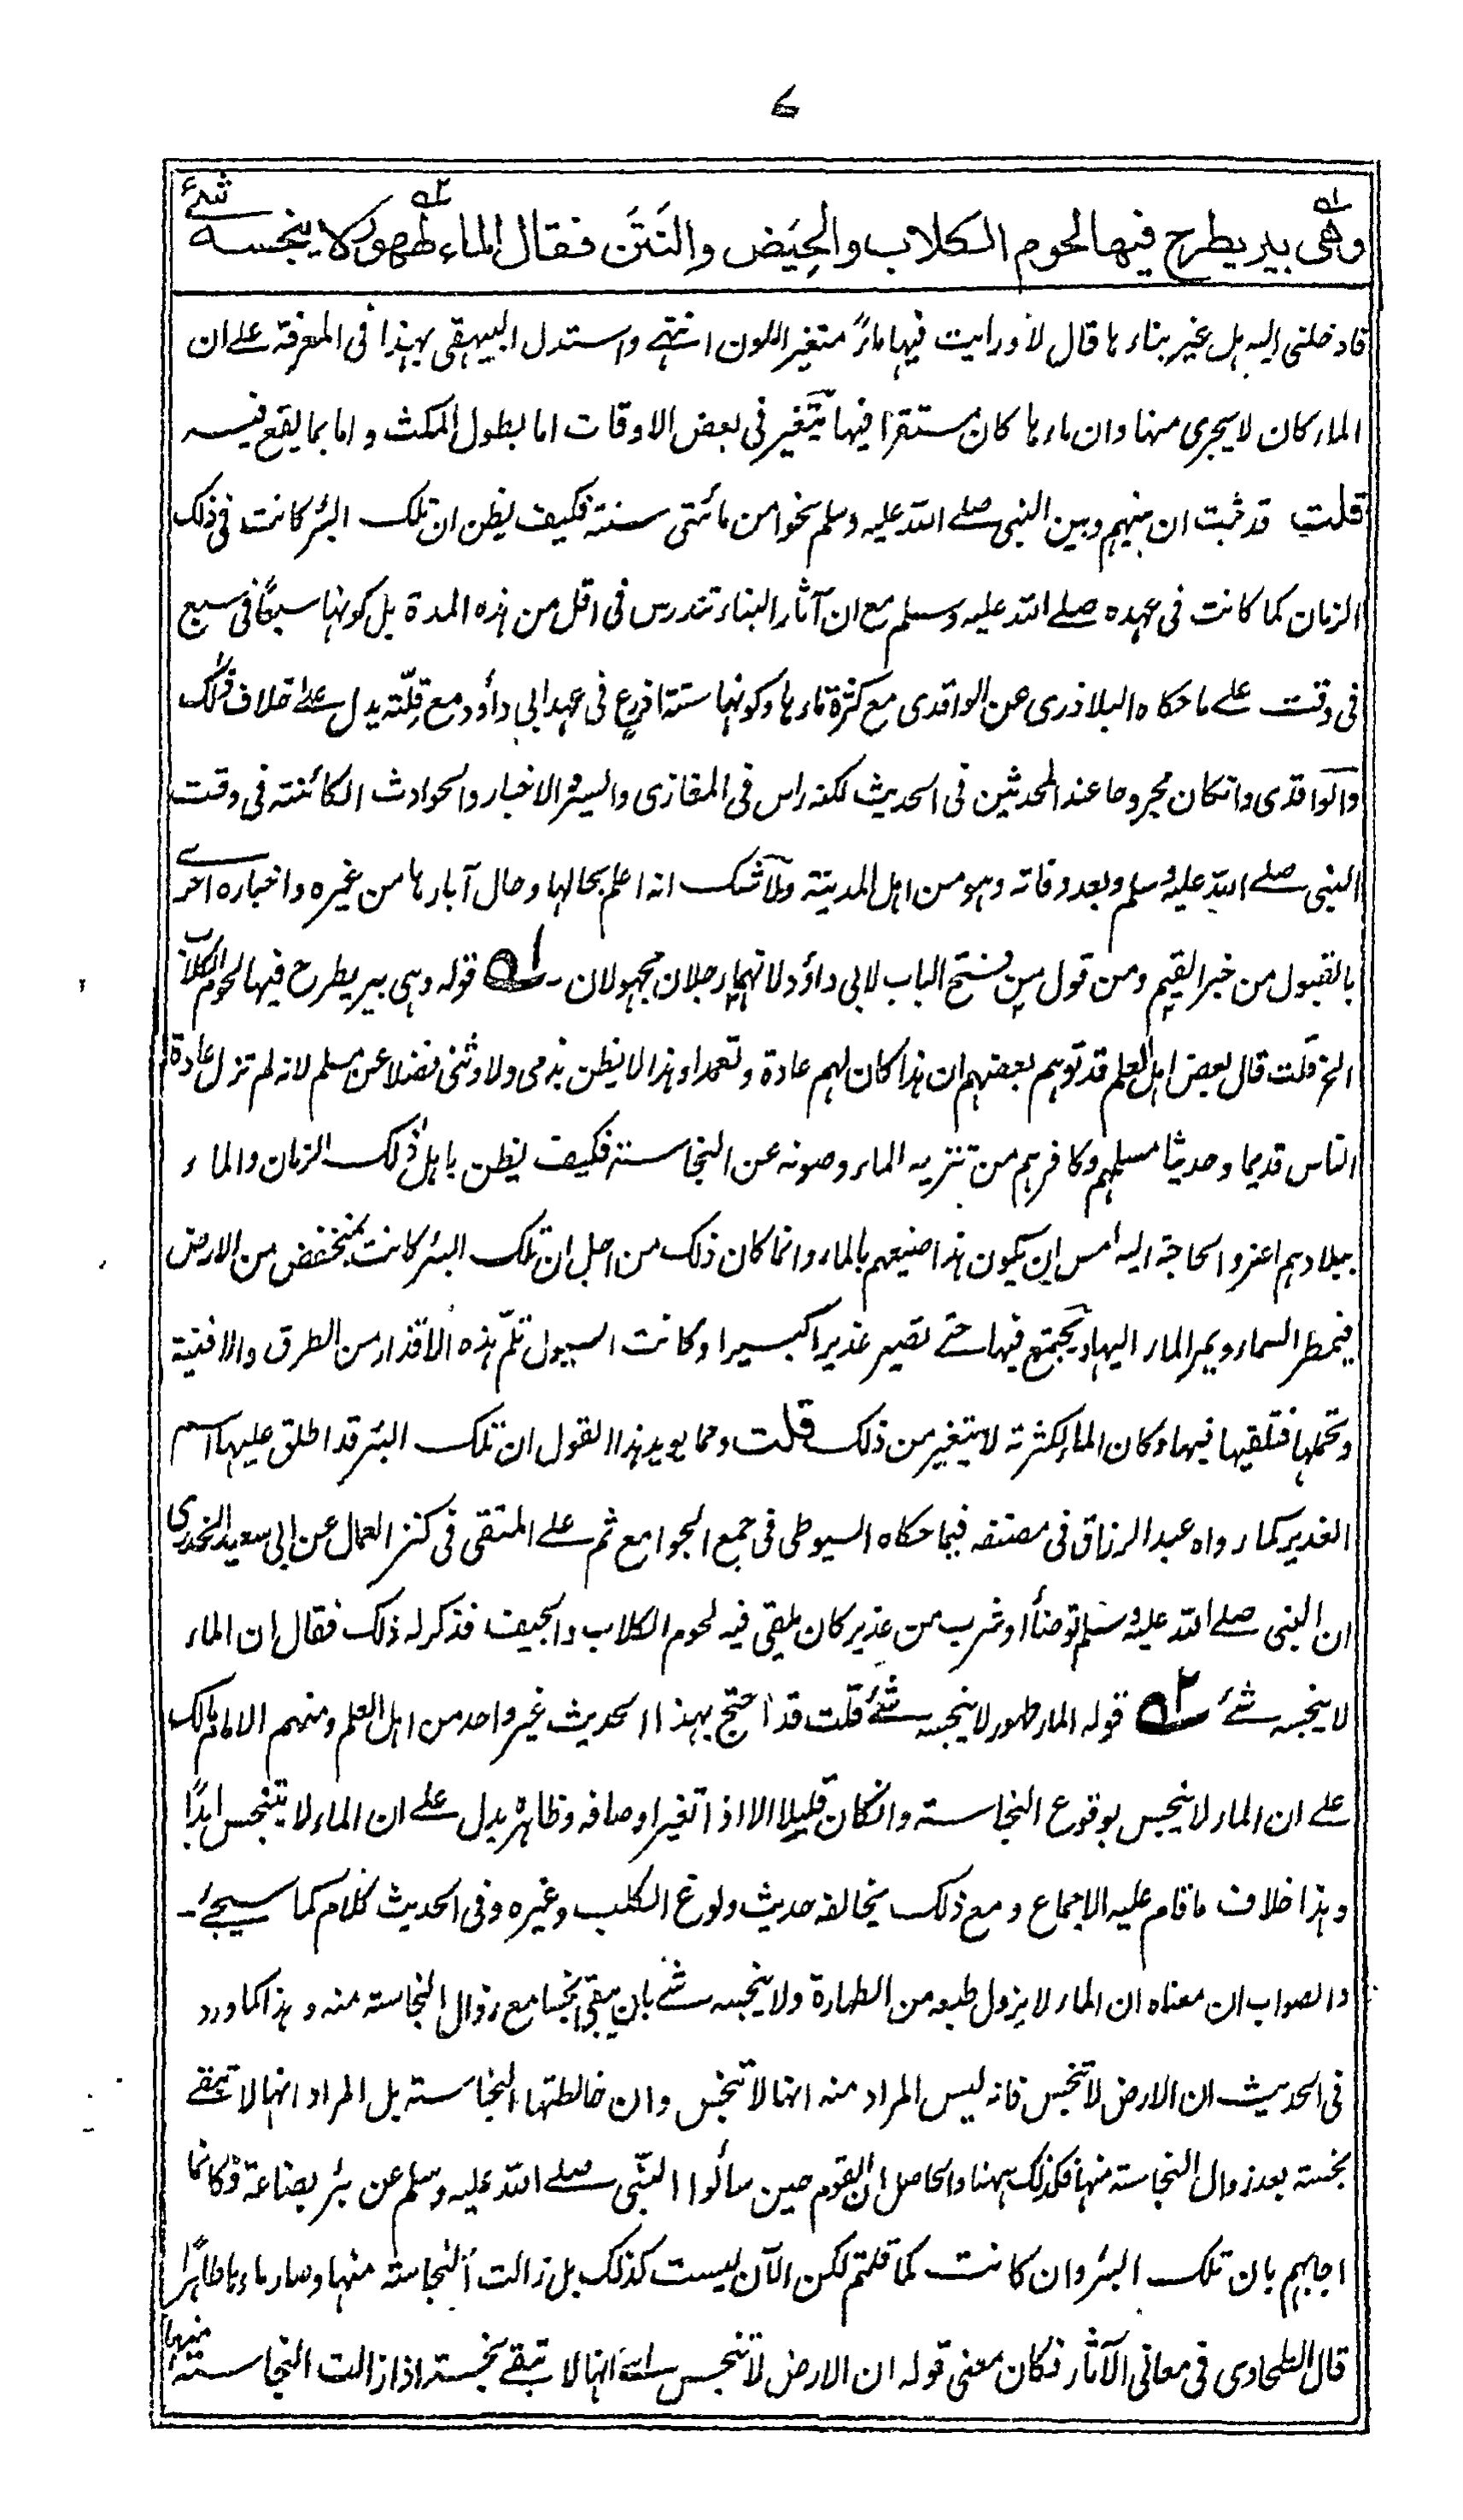 ٧
وهی بیر یطرح فیها لحوم الکلاب والحِیَض والنَتَن فقال الماء طهور لا ینجسه شیء
فادخلنی الیه هل غیر بناءها قال لا ورایت فیها ماءً متغیر اللون انتهے واستدل البیهقی بهذا فی المعرفة علے ان
الماء کان لا یجری منها وان ماءها کان مستقرا فیها یتغیر فی بعض الاوقات اما بطول المکث واما بما یقع فیه
قلت قد ثبت ان بینهم وبین النبی صلے الله علیه وسلم نحوا من مائتی سنة فکیف یظن ان تلک البئر کانت فی ذلک
الزمان کما کانت فی عهده صلے الله علیه وسلم مع ان آثار البناء تندرس فی اقل من هذه المدة بل کونها سبعًا فی سبع
فی وقت علے ما حکاه البلاذری عن الواقدی مع کثرة ماءها وکونها ستة اذرع فی عهد ابی داؤد مع قلّته یدل علے خلاف ذلک
والواقدی وانکان مجروحا عند المحدثین فی الحدیث لکنه راس فی المغازی والسیر والاخبار والحوادث الکائنة فی وقت
النبی صلے الله علیه وسلم وبعد وفاته وهو من اهل المدینة ولا شک انه اعلم بحالها وحال آبارها من غیره واخباره احرے
بالقبول من خبر القیم ومن قول من فتح الباب لابی داؤد لانهما رجلان مجهولان - ۱ه قوله وهی بیر یطرح فیها لحوم الکلاب
الخ قلت قال بعض اهل العلم قد توهم بعضهم ان هذا کان لهم عادة وتعمدا وهذا لا یظن بذمی ولا وثنی فضلا عن مسلم لانه لم تزل عادة
الناس قدیما وحدیثا مسلمهم وکافرهم من تنزیه الماء وصونه عن النجاسة فکیف یظن باهل ذلک الزمان والماء
ببلادهم اعز والحاجة الیه امس ان یکون هذا صنیعهم بالماء وانما کان ذلک من اجل ان تلک البئر کانت بمنخفض من الارض
فیمطر السماء ویمر الماء الیها ویجتمع فیها حتے تصیر غدیرا کبیرا وکانت السیول تلمّ هذه الاقذار من الطرق والافنیة
وتحملها فتلقیها فیها وکان الماء لکثرته لا یتغیر من ذلک قلت ومما یوید هذا القول ان تلک البئر قد اطلق علیها اسم
الغدیر کما رواه عبد الرزاق فی مصنفه فیما حکاه السیوطی فی جمع الجوامع ثم علے المتقی فی کنز العمال عن ابی سعید الخدری
ان النبی صلے الله علیه وسلم توضأ او شرب من غدیر کان یلقی فیه لحوم الکلاب والجیف فذکر له ذلک فقال ان الماء
لا ینجسه شئ ۲ه قوله الماء طهور لا ینجسه شئ قلت قد احتج بهذا الحدیث غیر واحد من اهل العلم ومنهم الامام مالک
علے ان الماء لا ینجس بوقوع النجاسة وانکان قلیلا الا اذا تغیر اوصافه وظاهره یدل علے ان الماء لا یتنجس ابدًا
وهذا خلاف ما قام علیه الاجماع ومع ذلک یخالفه حدیث ولوغ الکلب وغیره وفی الحدیث کلام کما سیجئ -
والصواب ان معناه ان الماء لا یزول طبعه من الطهارة ولا ینجسه شئ بان یبقی نجسا مع زوال النجاسة منه وهذا کما ورد
فی الحدیث ان الارض لا تنجس فانه لیس المراد منه انها لا تنجس وان خالطتها النجاسة بل المراد انها لا تبقے
نجسة بعد زوال النجاسة منها فکذلک ههنا والحاصل ان القوم حین سألوا النبّی صلے الله علیه وسلم عن بئر بضاعة فکانما
اجابهم بان تلک البئر وان کانت کما قلتم لکن الآن لیست کذلک بل زالت النجاسة منها وصار ماءها طاهرًا
قال الطحاوی فی معانی الآثار فکان معنی قوله ان الارض لا تنجس اے انها لا تبقے نجسة اذا زالت النجاسة منها